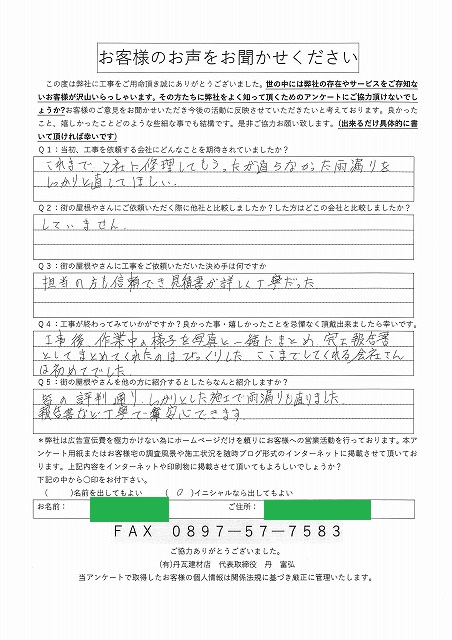 お客様のお声をお聞かせください
この度は弊社に工事をご用命頂き誠にありがとうございました。世の中には弊社の存在やサービスをご存知な
いお客様が沢山いらっしゃいます。その方たちに弊社をよく知って頂くためのアンケートにご協力頂けないでし
ょうか?お客様のご意見をお聞かせいただき今後の活動に反映させていただきたいと考えております。良かった
こと、嬉しかったことどのような些細な事でも結構です。是非ご協力お願い致します。(出来るだけ具体的に書
いて頂ければ幸いです)
Q1:当初、工事を依頼する会社にどんなことを期待されていましたか?
これまで 2社に修理してもらったが直らなかった雨漏りを
しっかりと直してほしい.
Q2:街の屋根やさんにご依頼いただく際に他社と比較しましたか?した方はどこの会社と比較しましたか?
していません.
Q3:街の屋根やさんに工事をご依頼いただいた決め手は何ですか
担当の方も信頼でき見積書が詳しく丁寧だった
Q4:工事が終わってみていかがですか?良かった事・嬉しかったことを忌憚なく頂戴出来ましたら幸いです。
工事後、作業中の様子を写真と一緒にまとめ、完工報告書
としてまとめてくれたのはびっくりした ここまでしてくれる会社さん
は初めてでした.
Q5:街の屋根やさんを他の方に紹介するとしたらなんと紹介しますか?
皆の評判通り.しっかりとした施工で雨漏りも直りました.
報告書など丁寧で安心できます.
*弊社は広告宣伝費を極力かけない為にホームページだけを頼りにお客様への営業活動を行っております。本ア
ンケート用紙またはお客様宅の調査風景や施工状況を随時ブログ形式のインターネットに掲載させて頂いてお
ります。上記内容をインターネットや印刷物に掲載させて頂いてもよろしいでしょうか?
下記の中から〇印をお付下さい。
( )名前を出してもよい ( 〇 )イニシャルなら出してもよい
お名前: ご住所:
FAX 0897-57-7583
ご協力ありがとうございました。
(有)丹瓦建材店 代表取締役 丹 富弘
当アンケートで取得したお客様の個人情報は関係法規に基づき厳正に管理いたします。